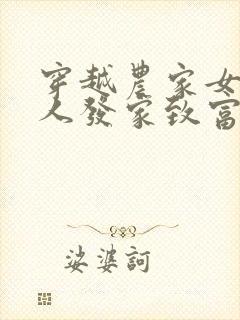 穿越農家女
人發家致富
娑婆訶